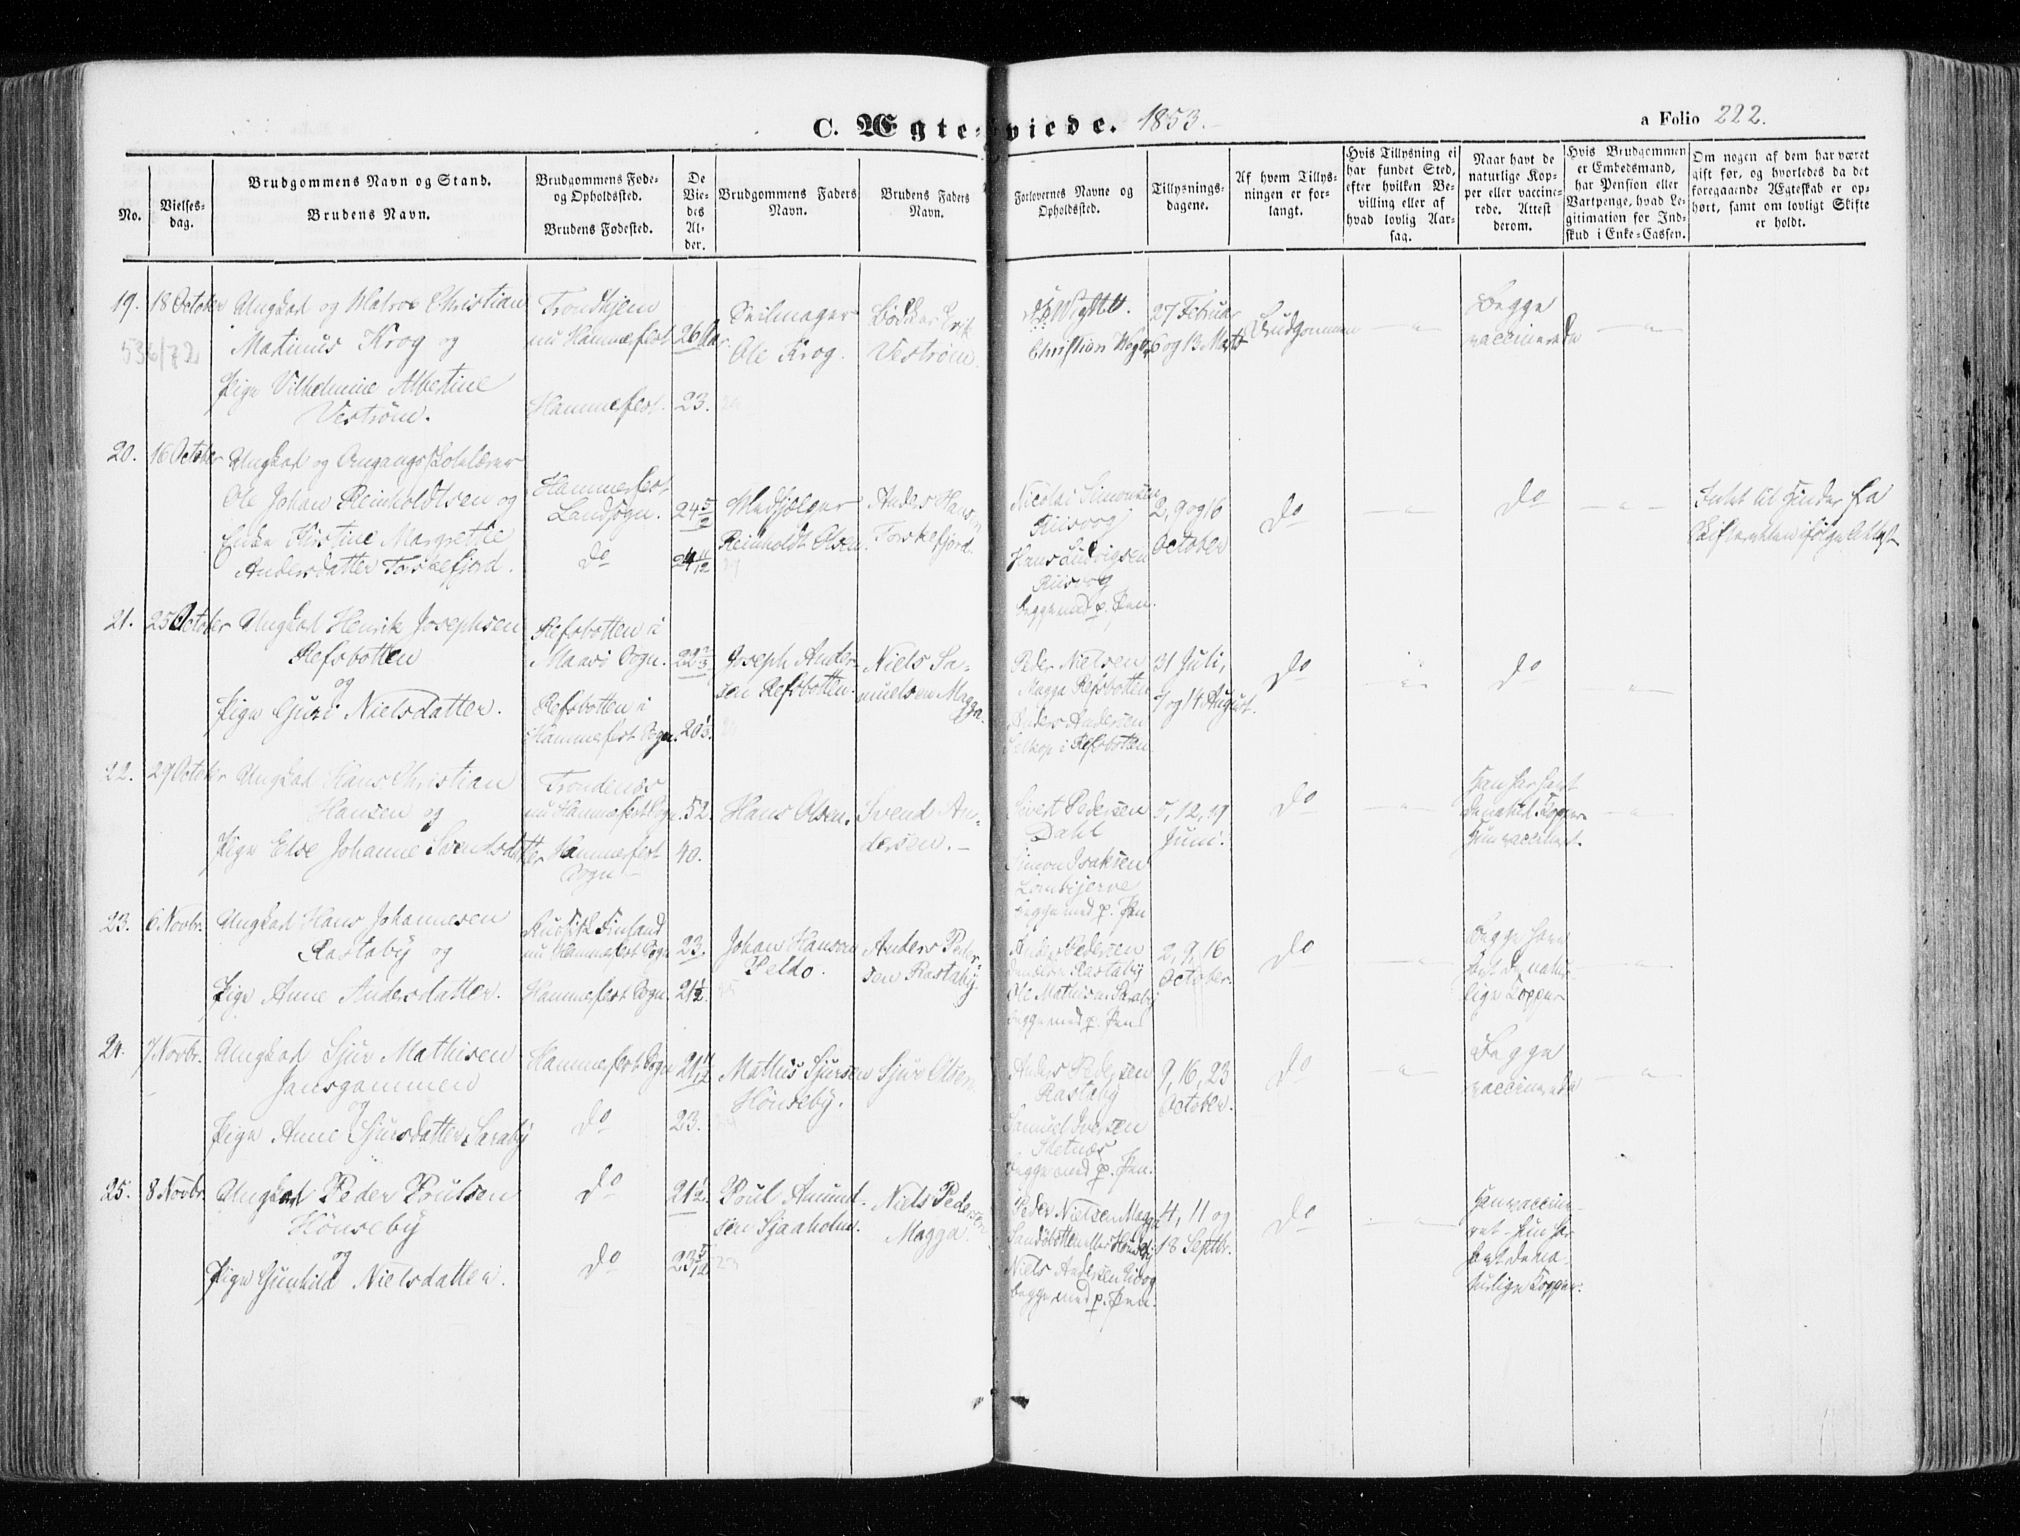 C. Ægteviede. 1853.
a Folio 222.
No.
Vielses-
dag.
Brudgommens Navn og Stand.
Brudens Navn.
Brudgommens Føde-
og Opholdssted.
Brudens Fødested.
De
Vie-
des
Al-
der.
Brudgommens Faders
Navn.
Brudens Faders
Navn.
Forlovernes Navne og
Opholdssted.
Tillysnings-
dagene.
Af hvem Tillys-
ningen er for-
langt.
Hvis Tillysning ei
har fundet Sted,
efter hvilken Be-
villing eller af
hvad lovlig Aar-
sag.
Naar havt de
naturlige Kop-
per eller vaccine-
rede. Attest
derom.
Hvis Brudgommen
er Embedsmand,
har Pension eller
Vartpenge, hvad Le-
gitimation for Ind-
skud i Enke-Cassen.
Om nogen af dem har været
gift før, og hvorledes da det
foregaaende Ægteskab er op-
hørt, samt om lovligt Skifte
er holdt.
19.
18 October
Ungkarl og Matros Christian
Matinus Krog og
Pige Vilhelmine Albertine
Vestrøm.
Trondhjem
nu Hammerfest
Hammerfest.
26 Aar
23.
Seilmager
Ole Krog.
Bødker Erik
Vestrøm
27 Februar
6 og 13 Marts
Brudgommen
Begge
vaccinerede
20.
16 October
Ungkarl og Omgangsskolelærer
Ole Johan Reinholdtsen og
Enke Kirstine Margrethe
Andersdatter Torskefjord.
Hammerfest
Landsogn.
do
24
Medhjælper
Reinholdt Olsen
Anders Hansen
Torskefjord.
Nicolai Simonsen
Hans Ludvigsen
begge med p. Pen.
2, 9 og 16
October
do
do
21.
25 October
Ungkarl Henrik Josephsen
Refsbotten
og
Pige Guri Nielsdatter.
Refsbotten i
Maasø Sogn.
Refsbotten i
Hammerfest Sogn.
Joseph Ander-
sen Refsbotten.
Niels Sa-
muelsen Magga.
Peder Nielsen
Magga Refsbotten
Anders Andersen
i Refsbotten
31 Juli,
7 og 14 August.
do
do
22.
29 October
Ungkarl Hans Christian
Hansen og
Pige Else Johanne Svendsdatter
Trondenæs
nu Hammerfest Sogn.
Hammerfest
Sogn
52.
40.
Hans Olsen.
Svend An-
dersen.
Sivert Pedersen
Dahl
Simon Isaksen
begge med p. Pen
5, 12, 19
Juni.
do
Han har havt
de naturl. Kopper
Hun vaccineret.
23.
6 Novbr.
Ungkarl Hans Johannesen
Rastaby og
Pige Anne Andersdatter.
Russisk Finland
nu Hammerfest Sogn
Hammerfest Sogn.
23.
21½
Johan Hansen
Peldo.
Anders Peder-
sen Rastaby
Anders Pedersen
Rastaby
Ole Mathisen Saraby
begge med p. Pen
2, 9, 16
October.
do
Begge have
havt de natur-
lige Kopper
24.
7 Novbr.
Ungkarl Sjur Mathisen
Jansgammen
og
Pige Anne Sjursdatter Saraby
Hammerfest Sogn
do
23.
Mathis Sjursen
Hønseby.
Sjur Olsen
Anders Pedersen
Rastaby
Samuel Iversen
begge med p. Pen.
9, 16, 23
October.
do
Begge
vaccinerede
25.
8 Novbr.
Ungkarl Peder Poulsen
Hønseby
og
Pige Gunhild Nielsdatter.
do
do
21½
Poul Amund-
sen Sjaaholm.
Niels Pedersen
Magga.
Peder Nielsen Magga
Niels Andersen
begge med p. Pen.
4, 11 og
18 Septbr.
do
Han vaccine-
ret - Hun har
havt de na-
turlige Kopper.